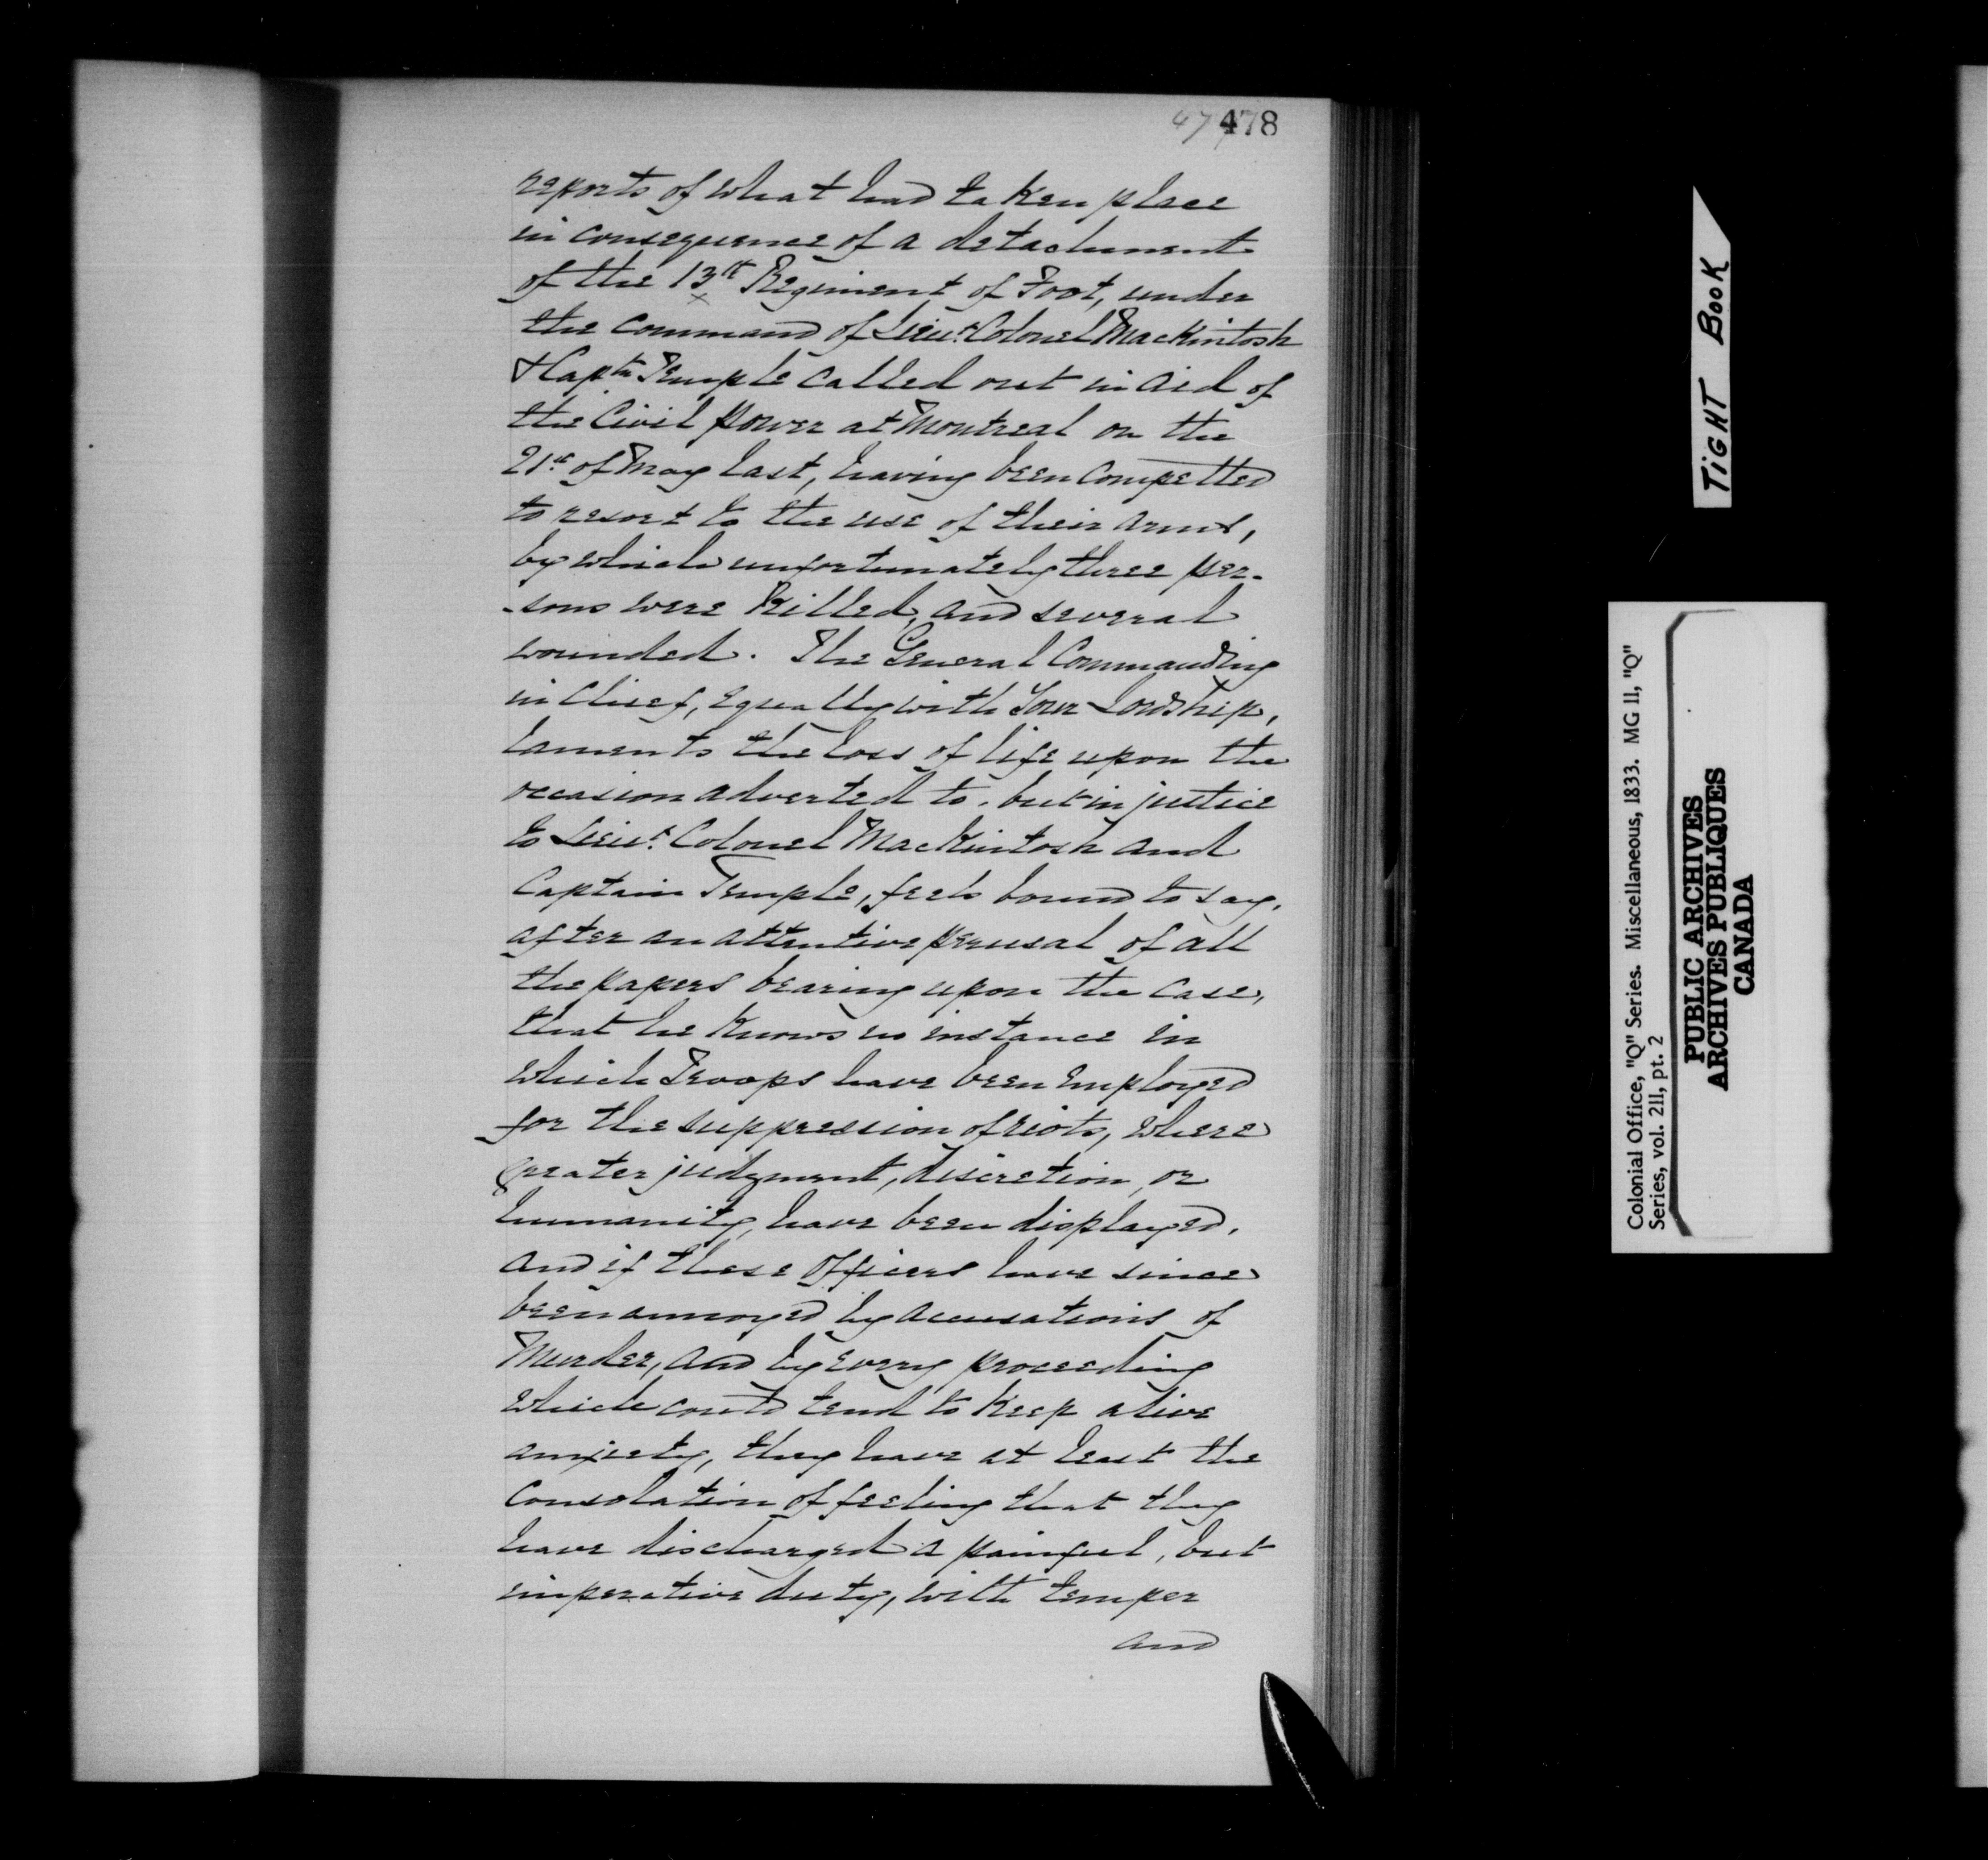 478
reports of what had taken place
in consequence of a detachment
of the 13th Regiment of Foot, under
the command of Lieut. Colonel Mackintosh
& Captn Temple called out in aid of
the Civil Power at Montreal on the
21st of May last, having been compelled
to resort to the use of their arms,
by which unfortunately three per-
-sons were killed, and several
wounded. The General Commanding
in Chief, equally with Your Lordship,
laments the loss of life upon the
occasion adverted to, but in justice
to Lieut. Colonel Mackintosh and
Captain Temple, feels bound to say,
after an attentive perusal of all
the papers bearing upon the case,
that he knows no instance in
which Troops have been employed
for the suppression of riots, where
greater judgment, discretion, or
humanity, have been displayed,
and if these Officers have since
been annoyed by accusations of
Murder, and by every proceeding
which could tend to keep alive
anxiety, they have at least the
consolation of feeling that they
have discharged a painful, but
imperative duty, with temper
and
TIGHT BOOK
Colonial Office, "Q" Series. Miscellaneous, 1833. MG 11, "Q"
Series, vol. 211, pt. 2
PUBLIC ARCHIVES
ARCHIVES PUBLIQUES
CANADA